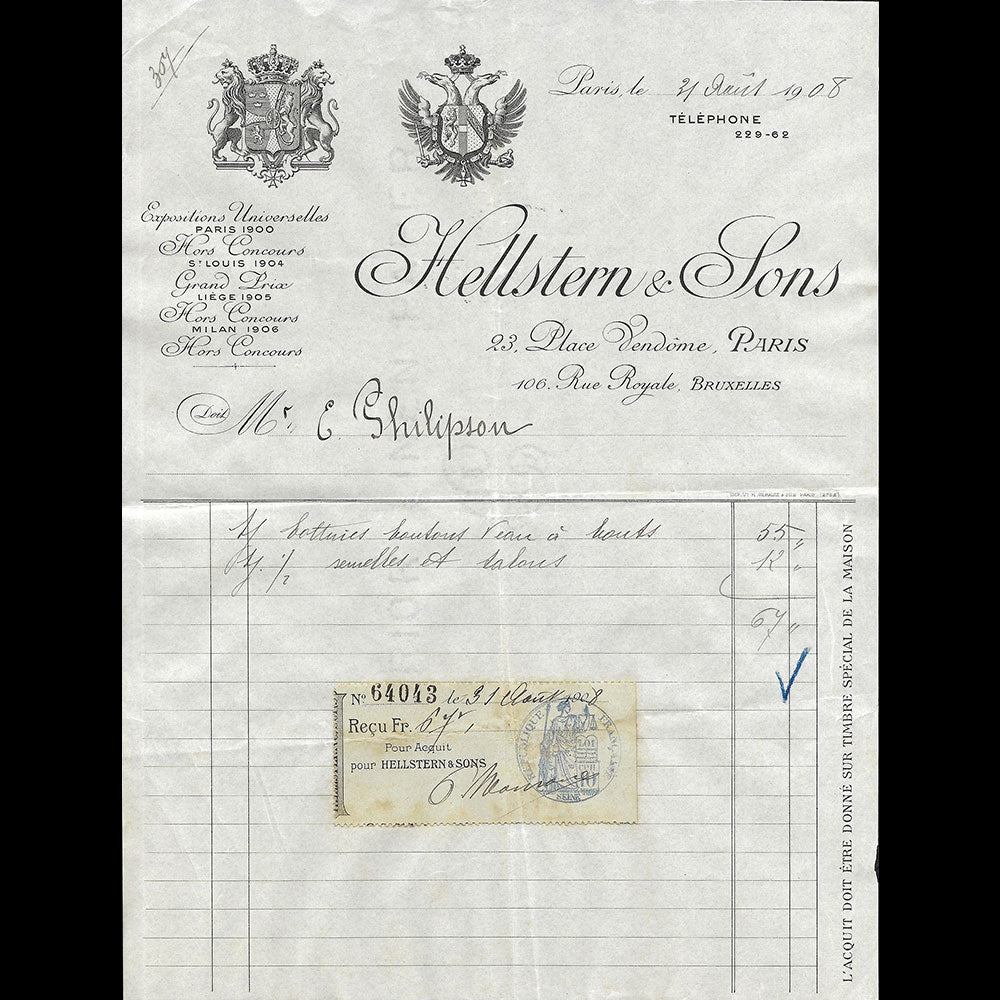 307
Paris, le 31 Août 1908
TÉLÉPHONE
229-62
Expositions Universelles
PARIS 1900
Hors Concours
ST LOUIS 1904
Grand Prix
LIÉGE 1905
Hors Concours
MILAN 1906
Hors Concours
Hellstern & Sons
23, Place Vendôme, PARIS
106, Rue Royale, BRUXELLES
Doit Mr. E. Philipson
1/ bottines boutons veau à bouts 55 "
1/2 semelles et talons 12 "
67 "
No 64043 le 31 Août 1908
Reçu Fr. 67
Pour Acquit
pour HELLSTERN & SONS
RÉPUBLIQUE FRANÇAISE
LOI
10
SEINE
L'ACQUIT DOIT ÊTRE DONNÉ SUR TIMBRE SPÉCIAL DE LA MAISON